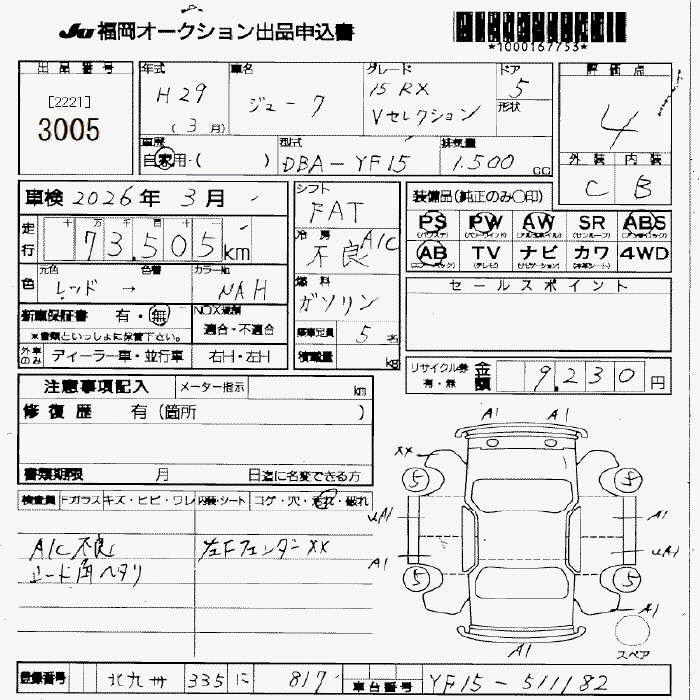 JU 福岡オークション出品申込書
*1000167753*
出品番号
[2221]
3005
年式
H29
(3月)
車名
ジューク
グレード
15RX
Vセレクション
ドア
5
形状
評価点
4
外装 内装
C B
車歴
自家用・( )
型式
DBA-YF15
排気量
1.500 CC
車検 2026年 3月
走行
十 万 千 百 十
73.505km
色
元色 色替
レッド →
カラーNo
NAH
新車保証書 有・無
※書類といっしょに保管下さい。
NOX規制
適合・不適合
外車のみ
ディーラー車・並行車
右H・左H
シフト
FAT
冷房
不良 A/C
燃料
ガソリン
乗車定員 5名
積載量 kg
装備品(純正のみ〇印)
PS PW AW SR ABS
AB TV ナビ カワ 4WD
セールスポイント
リサイクル券
有・無
金額 9.230円
注意事項記入
メーター指示 km
修復歴 有(箇所 )
書類期限 月 日迄に名変できる方
検査員 Fガラスキズ・ヒビ・ワレ 内装・シート コゲ・穴・汚れ・破れ
A/C 不良
左Fフェンダーxx
シート角ヘタリ
A1 A1
xx
5 5
A1
A1
A1
5 5
A1
A1
スペア
登録番号 北九州 335 に 817
車台番号 YF15-511182